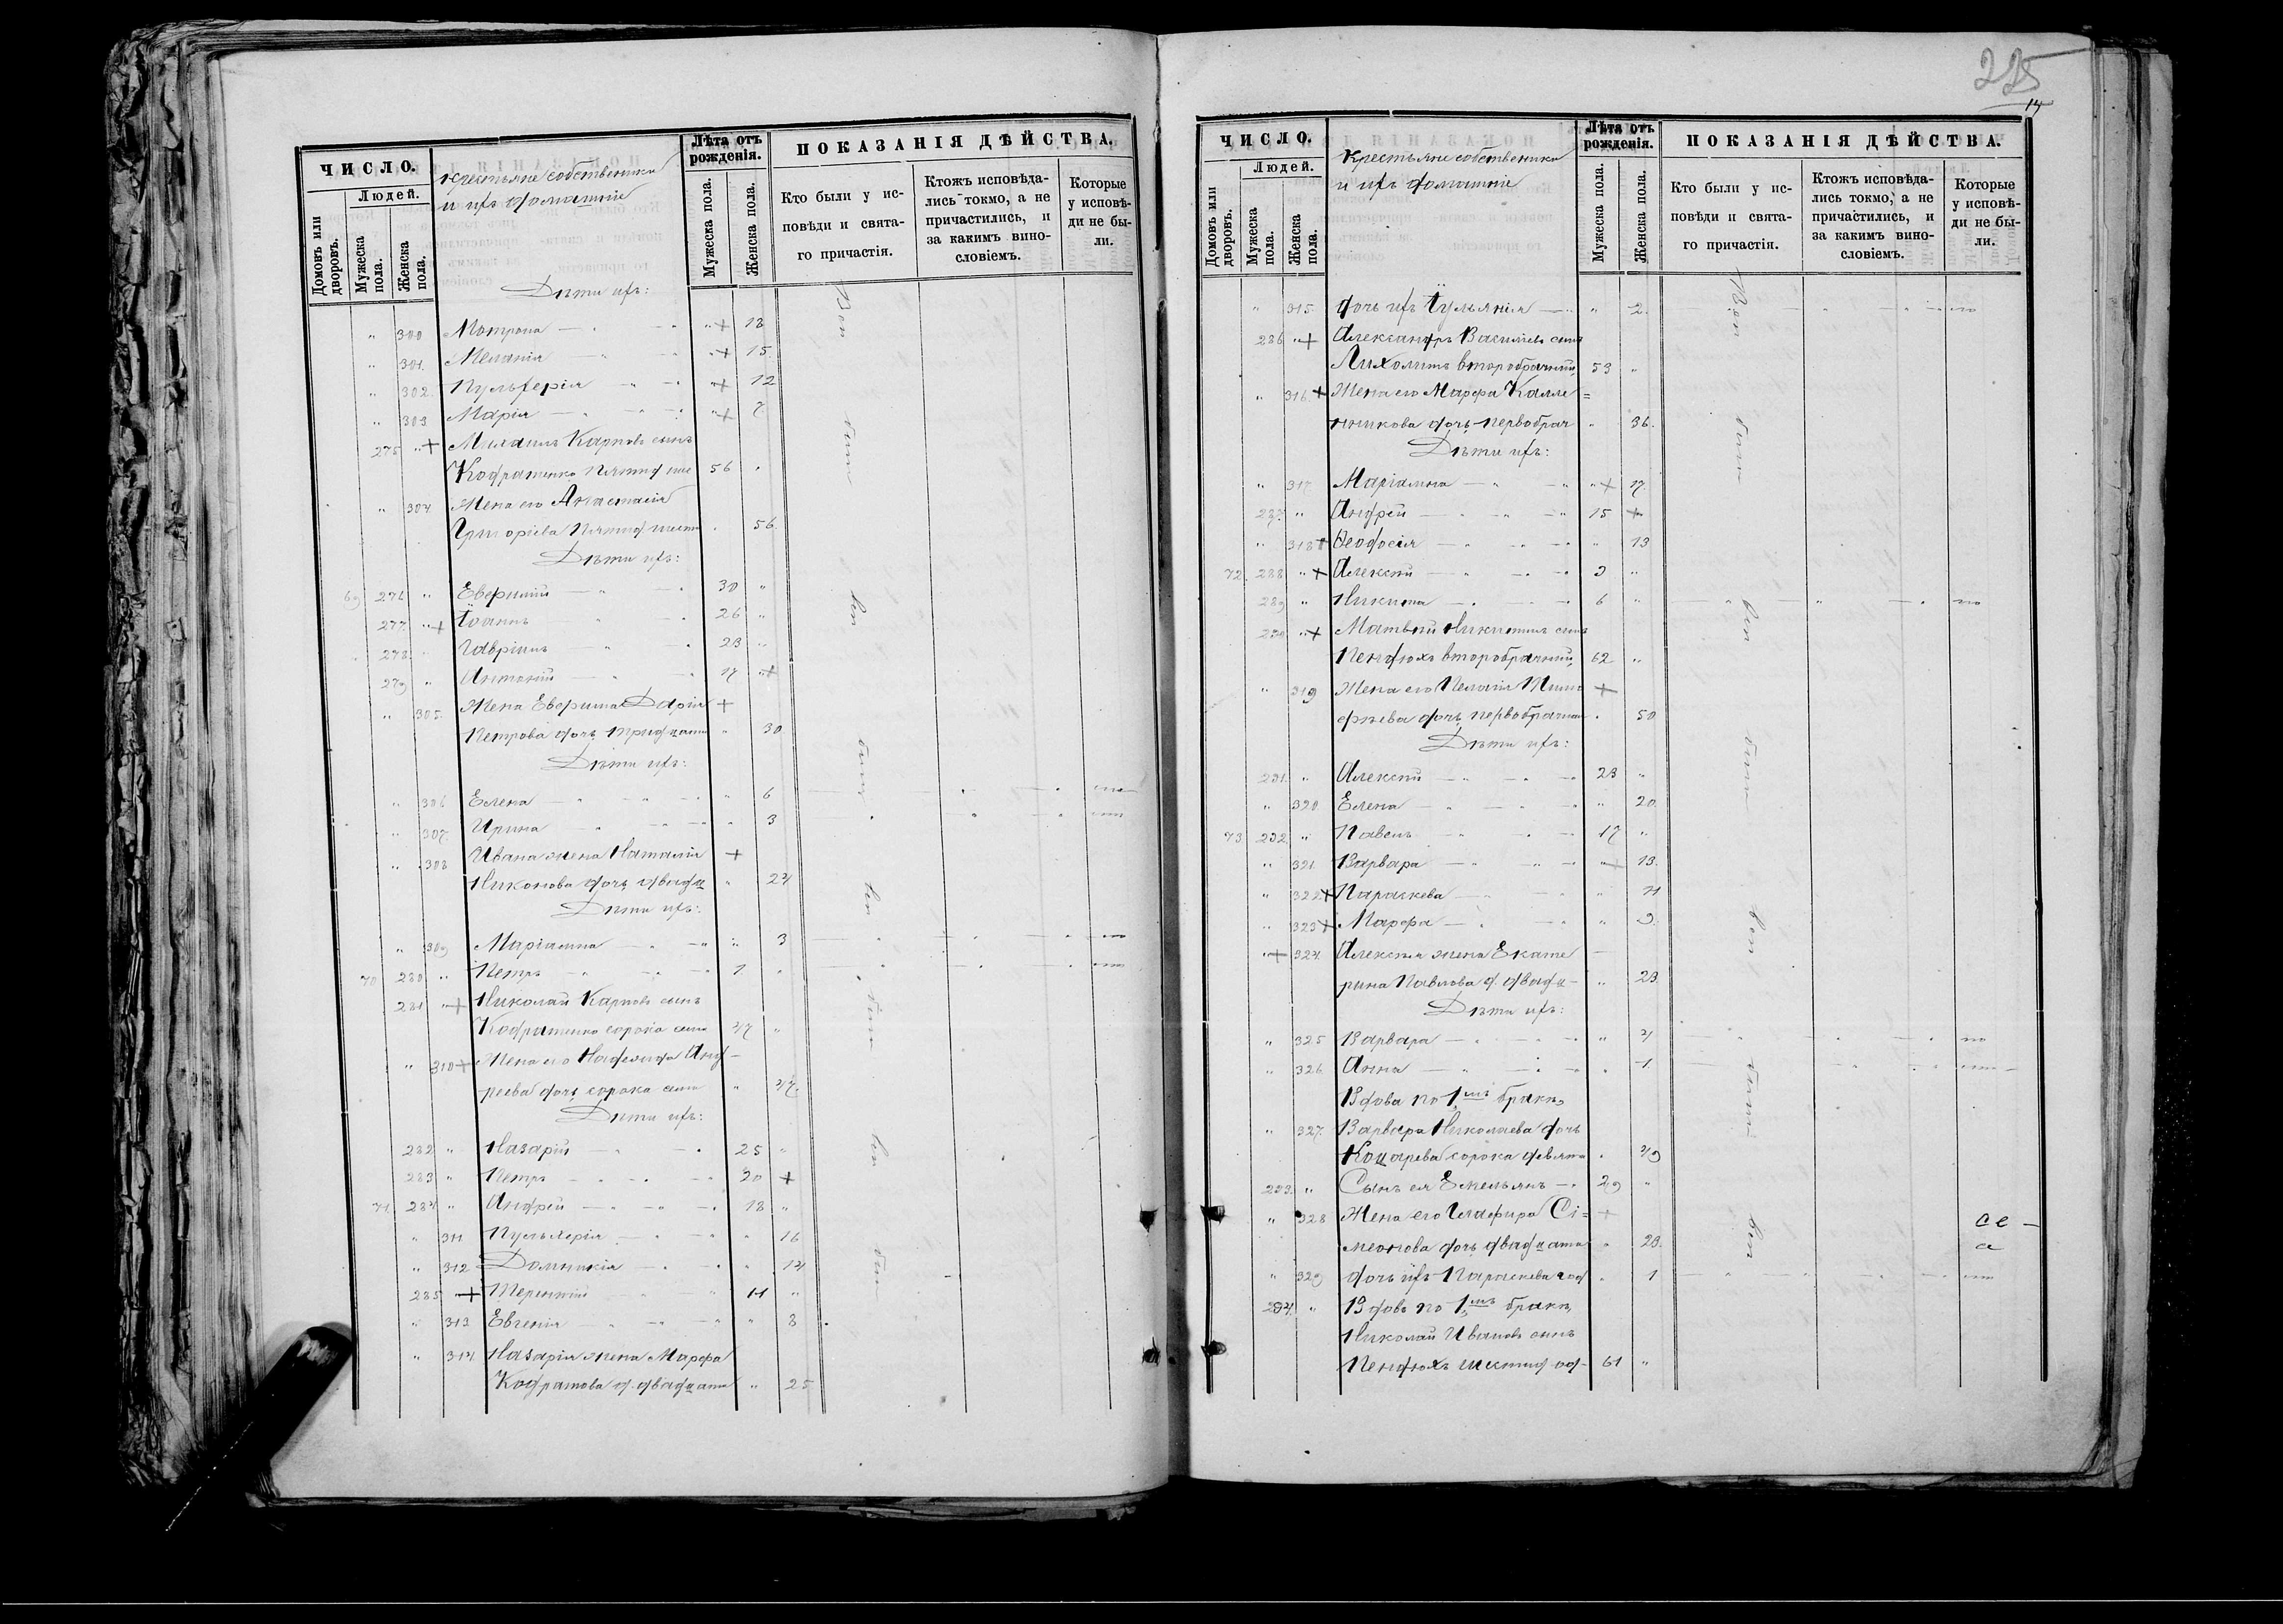 ЧИСЛО.
Людей.
Домовъ или дворовъ.
Мужеска пола.
Женска пола.
Крестьяне собственники
и ихъ домашніе
Лѣта отъ рожденія.
Мужеска пола.
Женска пола.
ПОКАЗАНІЯ ДѢЙСТВА.
Кто были у исповѣди и святаго причастія.
Ктожъ исповѣдались токмо, а не причастились, и за какимъ винословіемъ.
Которые у исповѣди не были.
Дѣти ихъ:
" 300 Мотрона " + 18
" 301. Меланія " + 15.
" 302. Пульхерія " + 12
" 303 Марія " + 7
275 " + Михаилъ Карповъ сынъ
Кондратенко пятид. ше 56 "
" 304. Жена его Анастасія
Григоріева пятид. шест " 56.
Дѣти ихъ:
69 276 " Евфимій 30 "
277. " + Іоаннъ 26 "
278. " Гавріилъ 23 "
279 " Антоній 17 " +
" 305. Жена Евфима Дарія +
Петрова дочь тридцати " 30
Дѣти ихъ:
" 306 Елена " 6
" 307. Ирина " 3
" 308 Ивана жена Наталія +
Никонова дочь двадц " 24
Дѣти ихъ:
" 309 Маріамна " 3
70 280 " Петръ 1 "
281 " + Николай Карповъ сынъ
Кондратенко сорока семи 47 "
" 310 + Жена его Надежда Анд-
реева дочь сорока семи " 47.
Дѣти ихъ:
282 " Назарій 25 "
283 " Петръ 20 +
71. 284 " Андрей 18 "
" 311 Пульхерія " 16
" 312 Домникія " 14
285 " + Терентій 11 "
" 313 Евгенія " 8
" 314. Назарія жена Марфа
Кодратова д. двадцати " 25
225
14
ЧИСЛО.
Людей.
Домовъ или дворовъ.
Мужеска пола.
Женска пола.
Крестьяне собственники
и ихъ домашніе
Лѣта отъ рожденія.
Мужеска пола.
Женска пола.
ПОКАЗАНІЯ ДѢЙСТВА.
Кто были у исповѣди и святаго причастія.
Ктожъ исповѣдались токмо, а не причастились, и за какимъ винословіемъ.
Которые у исповѣди не были.
" 315. дочь ихъ Іульянія " 2.
286 " + Александръ Василіевъ сынъ
Лихолитъ второбрачный 53 "
" 316. + Жена его Марфа Калле=
никова дочь первобрач " 36.
Дѣти ихъ:
" 317. Маріамна " + 17.
287. " Андрей 15 +
" 318 + Ѳеодосія " 13
72. 288 " + Алексѣй 9 "
289 " Никита 6 "
290 " + Матвѣй Никитинъ сынъ
Пендюхъ второбрачный 62 "
" 319 Жена его Пелагія Тимо +
феева дочь первобрачная " 50
Дѣти ихъ:
291. " Алексѣй 23 "
" 320 Елена " 20.
73 292. " Павелъ 17 "
" 321. Варвара " + 13.
" 322. + Параскева " 11
" 323 + Марфа " 9.
" + 324. Алексѣя жена Екате
рина Павлова д. двадц- " 23.
Дѣти ихъ:
" 325 Варвара " 4
" 326. Анна " 1.
Вдова по 1мъ бракѣ
" 327. Варвара Николаева дочь
Коцарева сорока девяти " 49
293. " Сынъ ея Емельянъ 29 "
" 328 Жена его Глафира Сі= +
меонова дочь двадцати " 23.
" 329 дочь ихъ Параскева год " 1
294. " Вдовъ по 1мъ бракѣ
Николай Ивановъ сынъ
Пендюхъ шестид. од- 61 "